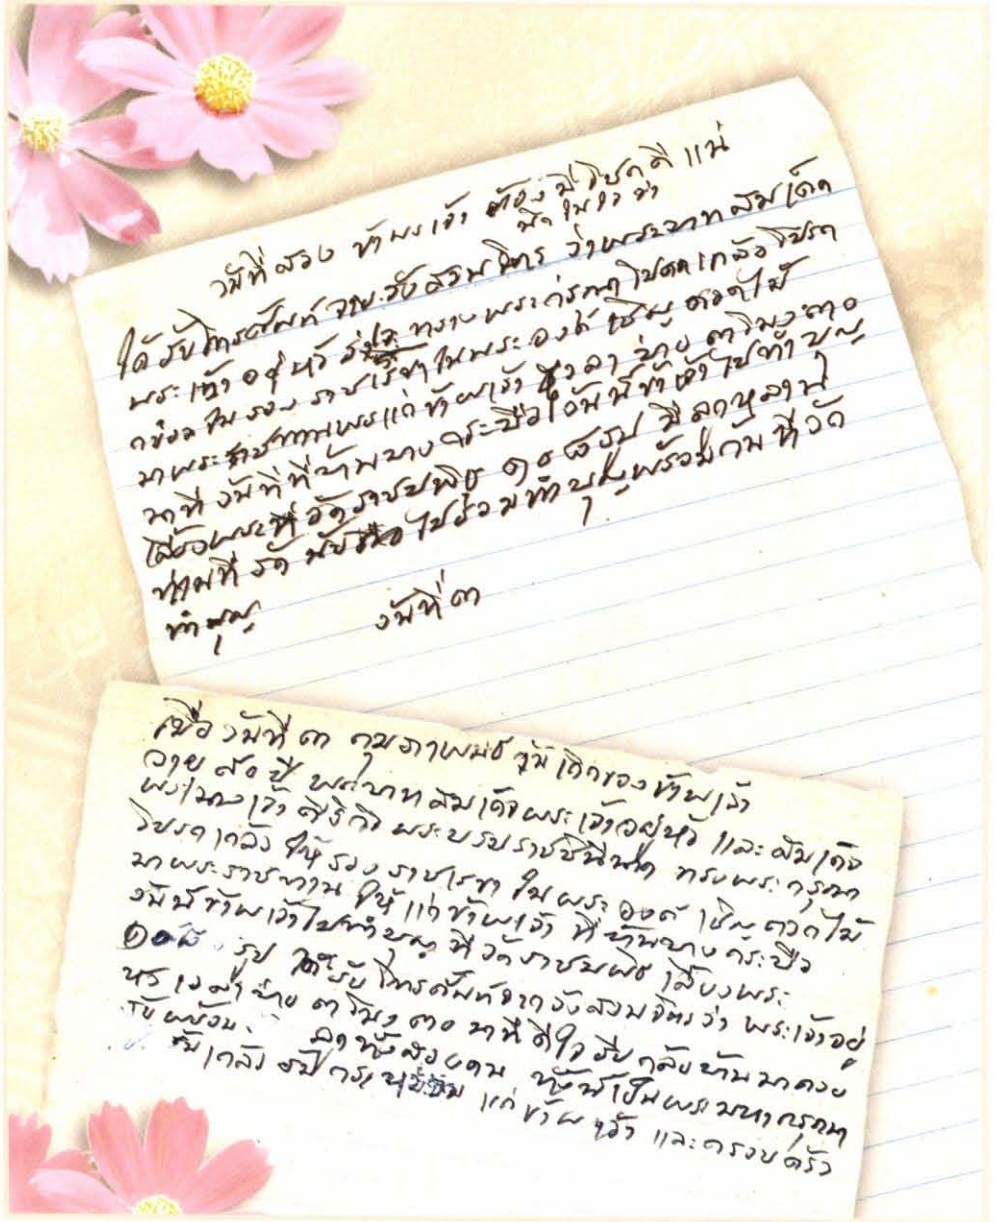 วันที่สอง ข้าพเจ้า ต้องมีโชคดี แน่
นึกในใจว่า
ได้รับโทรศัพท์จากวังสวนจิตร ว่าพระบาทสมเด็จ
พระเจ้าอยู่หัว ทรงพระกรุณาโปรดเกล้าโปรด
กระหม่อม ให้รองราชเลขาในพระองค์ เชิญดอกไม้
มาพระราชทานพรแก่ข้าพเจ้า เวลา บ่าย ๓ โมง ๓๐
นาที วันที่ที่บ้านบางกระบือ วันนี้ข้าเจ้าไปทำบุญ
เลี้ยงพระที่วัดราชบพิธ ๑๐๘ รูป มีลูกหลาน
ไปร่วมทำบุญพร้อมกันที่วัด
ทำบุญ วันที่ ๓
เมื่อวันที่ ๓ กุมภาพันธ์ วันเกิดของข้าพเจ้า
อายุ ปี พระบาทสมเด็จพระเจ้าอยู่หัว และสมเด็จ
พระนางเจ้า สิริกิ พระบรมราชินีนาถ ทรงพระกรุณา
โปรดเกล้า ให้รองราชเลขา ในพระองค์ เชิญดอกไม้
มาพระราชทาน ให้แก่ข้าพเจ้า ที่บ้านบางกระบือ
วันนี้ข้าพเจ้าไปทำบุญ ที่วัดราชบพิธ เลี้ยงพระ
๑๐๘ รูป ได้รับโทรศัพท์จากวังสวนจิตรว่า พระเจ้าอยู่
หัว เวลาบ่าย ๓ โมง ๓๐ นาที ดีใจ รีบกลับบ้านมาคอย
รับพร้อม ลูกทั้งสองคน ทั้งนี้เป็นพระมหากรุณา
ล้นเกล้า ล้นกระหม่อม แก่ข้าพเจ้า และครอบครัว